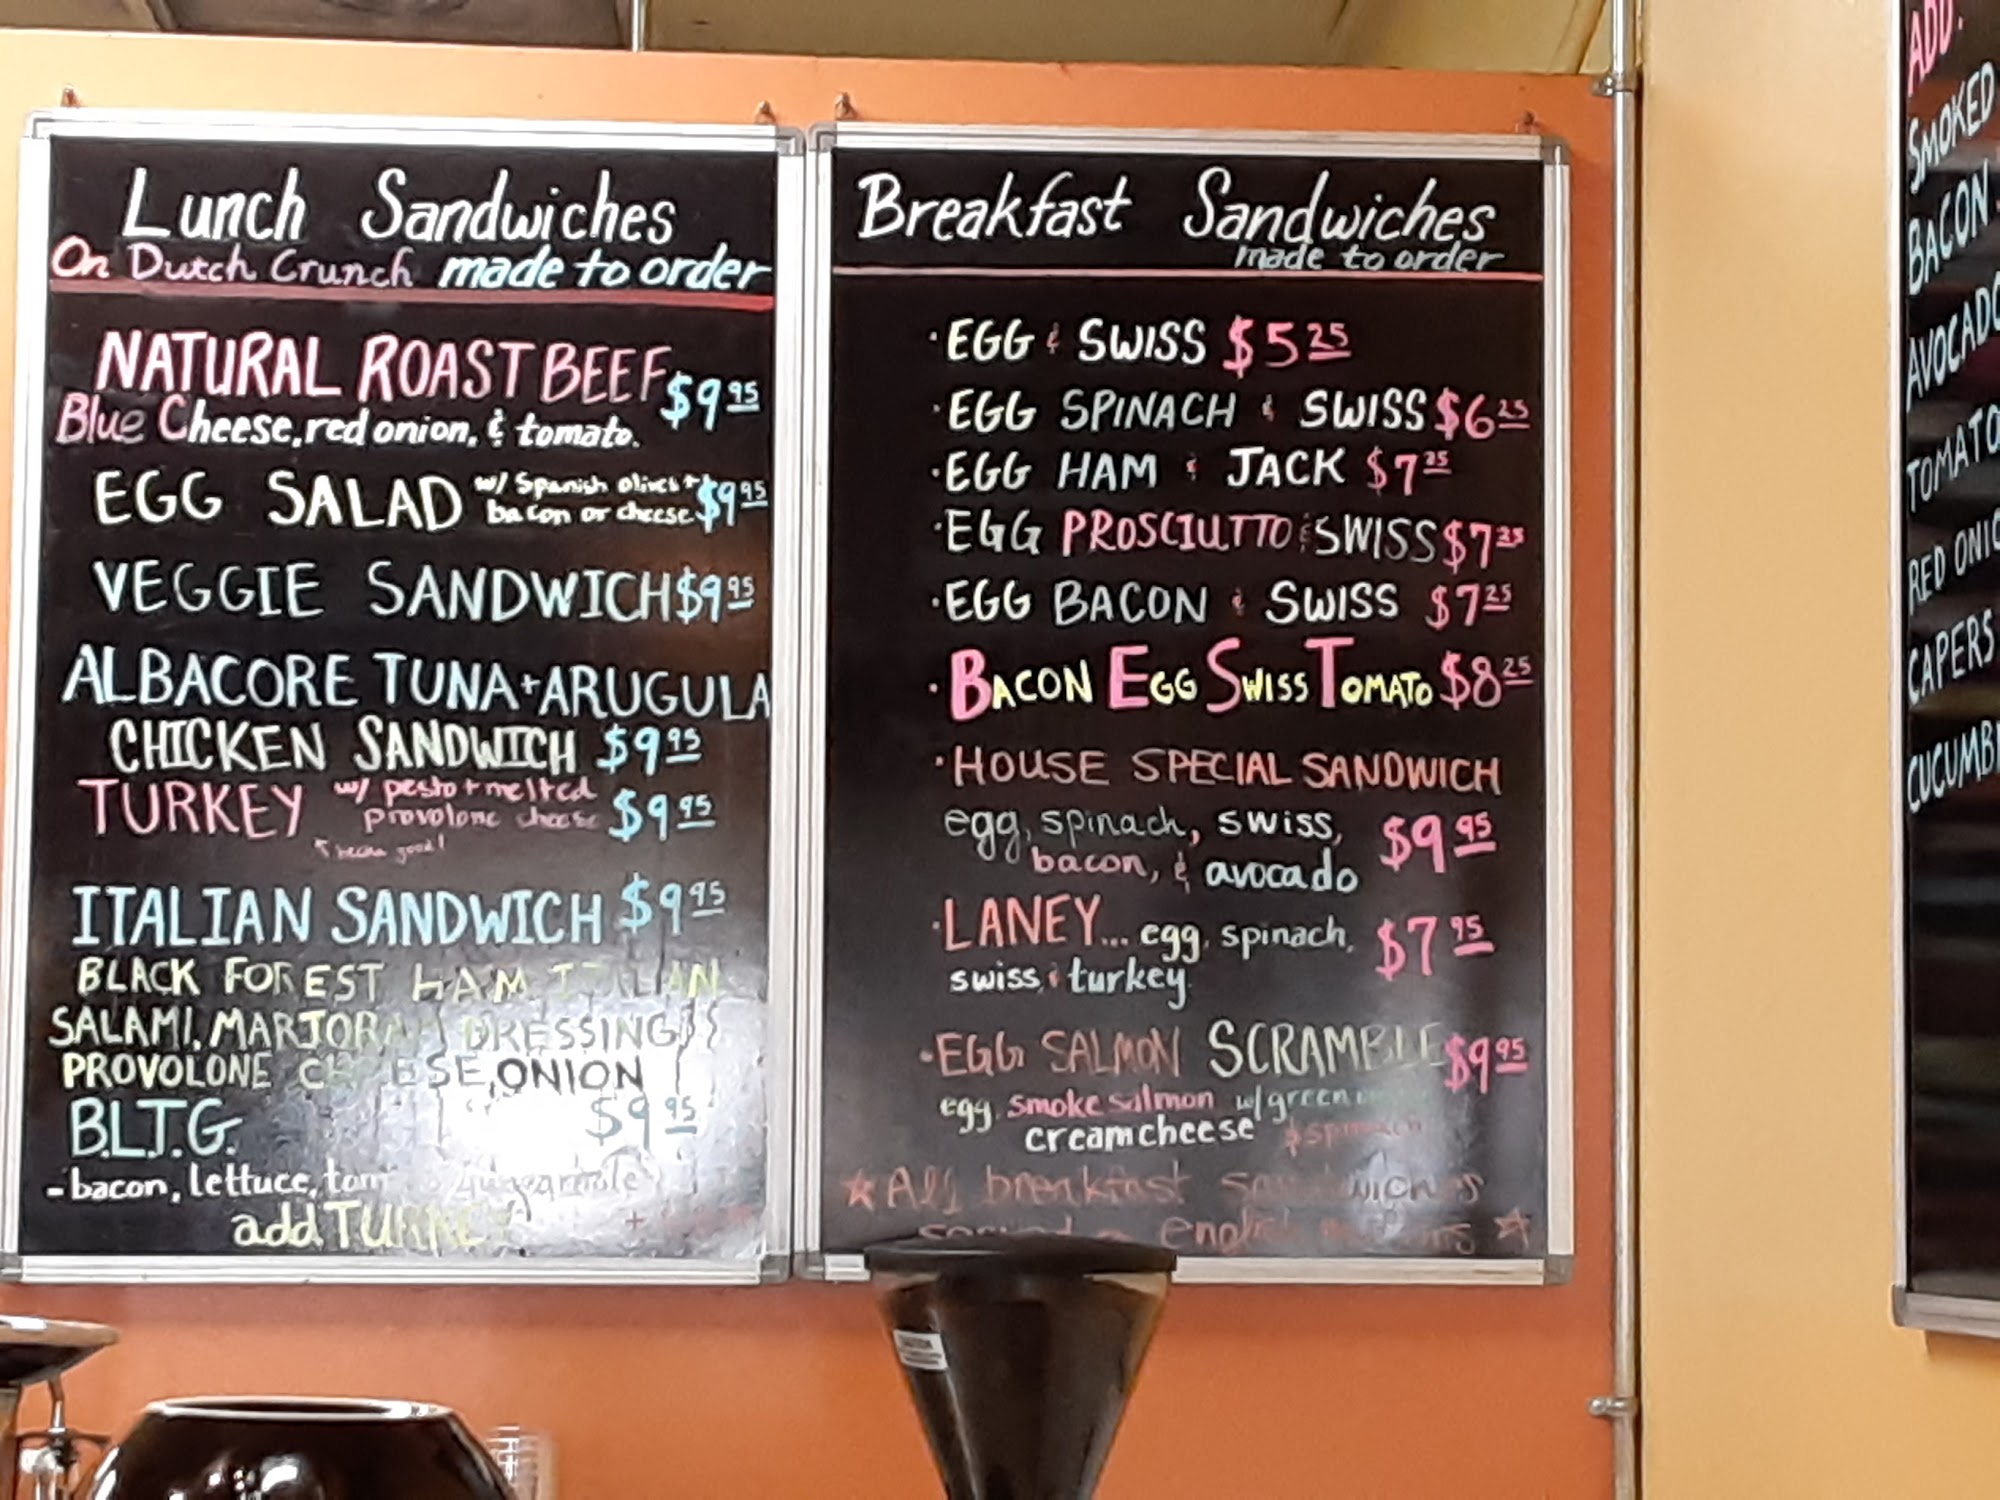 Lunch Sandwiches
On Dutch Crunch made to order
NATURAL ROAST BEEF
$9 95
Blue Cheese, red onion, & tomato.
EGG SALAD w/ Spanish olives +
bacon or cheese $9 95
VEGGIE SANDWICH $9 95
ALBACORE TUNA + ARUGULA
CHICKEN SANDWICH $9 95
TURKEY w/ pesto + melted
provolone cheese $9 95
good!
ITALIAN SANDWICH $9 95
BLACK FOREST HAM ITALIAN
SALAMI, MARJORAM DRESSING
PROVOLONE CHEESE, ONION
B.L.T.G. $9 95
- bacon, lettuce,
add TURKEY
Breakfast Sandwiches
made to order
· EGG & SWISS $5 25
· EGG SPINACH & SWISS $6 25
· EGG HAM & JACK $7 25
· EGG PROSCIUTTO & SWISS $7 25
· EGG BACON & SWISS $7 25
· BACON EGG SWISS TOMATO $8 25
· HOUSE SPECIAL SANDWICH
egg, spinach, swiss,
bacon, & avocado $9 95
· LANEY... egg, spinach,
swiss, & turkey $7 95
· EGG SALMON SCRAMBLE $9 95
egg, smoke salmon w/ green
creamcheese & spinach
☆ All breakfast sandwiches
served english muffins ☆
ADD:
SMOKED
BACON
AVOCADO
TOMATO
RED
CAPERS